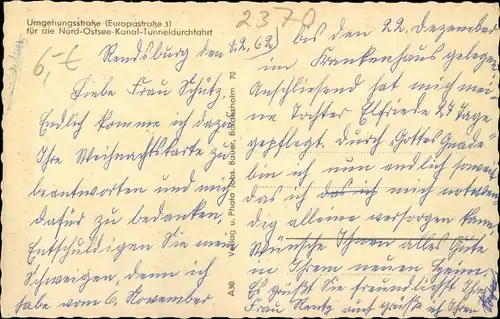 Umgehungsstraße (Europastraße 3)
für die Nord-Ostsee-Kanal-Tunneldurchfahrt
2370
6,-
Rendsburg den 62
Liebe Frau Schütz.
Endlich komme ich dazu
Ihre Weihnachtskarte zu
beantworten und mich
dafür zu bedanken,
Entschuldigen Sie
Umgehend, denn ich
habe vom 6. November
A 30 Verlag u. Photo Johs. Bauer, Büdelsholm 70
bis den 22. Dezember
im Krankenhaus gelegen
Anschließend hat mich mei
ne Tochter Elfriede 27 Tage
gepflegt. durch Gottes Gnade
bin ich nun endlich soweit
das ich das ich mich notwen
dig alleine versorgen kann.
Wünsche Ihnen alles Gute
in Ihrem neuen Heim.
Es grüßt Sie freundlichst Ihre
Frau Rentz auch grüße ich Ihren